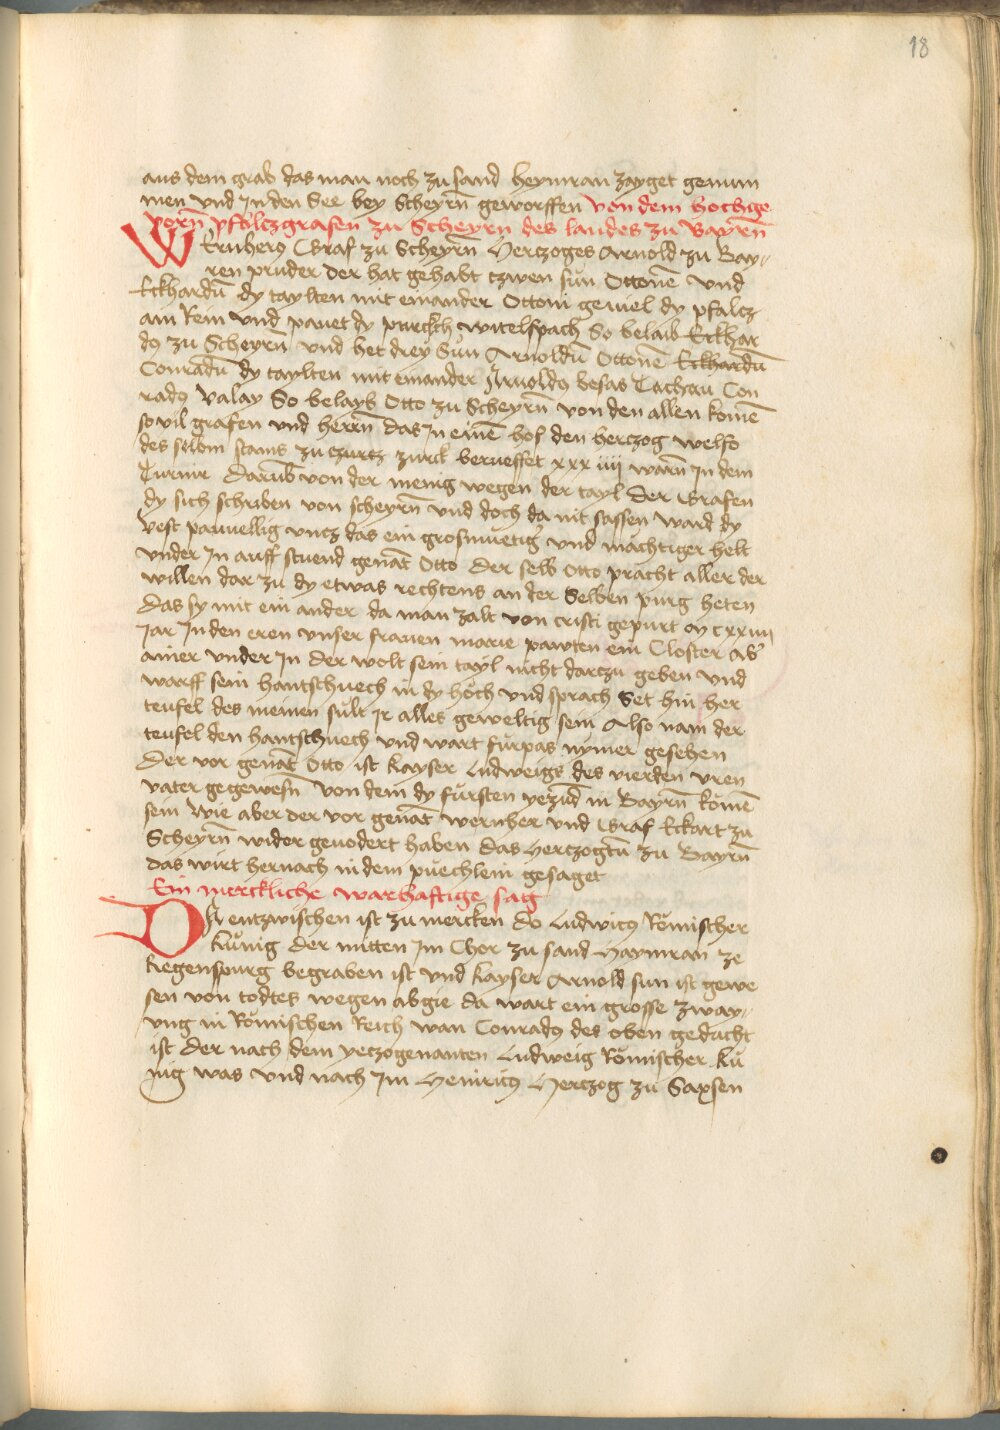 18
aus dem grab das man noch zu sand heymran zayget genum
men und In den See bey Scheyrn̄ geworffen von dem hochge
porn̄ pfalczgrafen zu Scheyrn des landes zu Bayrn̄
WErnherꝰ Graf zu Scheyrn̄ Hertzoges Arnold zu Bay„
ren pruder der hat gehabt tzwen sun Ottonē und
Eckhardū dy taylten mit einander Ottoni geviel dy pfalcz
am Rein und pauet dy purckch witelspach So belaib Eckhar
dꝰ zu Scheyrn̄ und het drey Sun Arnoldū Ottonē Eckhardū
Conradū dy taylten mit einander Arnoldꝰ besas Dachau Con
radꝰ Valay So belayb Otto zu Scheyrn̄ von den allen komē
sovil grafen und herrn̄ das In einē hof den hertzog welfo
des selbm stams zu czurtz zurck berueffet xxx iiij warn̄ In dem
Turnir Darūb von der menig wegen der tayl der Grafen
dy sich schriben von scheyrn̄ und doch da nit sassen ward dy
vest pauuellig untz das ein grosmuetigꝰ und mächtiger helt
under In auff stuend genāt Otto Der selb Otto pracht aller der
willen dar zu dy etwas rechtens an der Selben purg heten
das sy mit ein ander da man zalt von cristi gepurt M cxxiiij
Jar In den eren unser frauen marie pawten ein Closter Abꝰ
ainer under In der wolt sein tayl nicht dartzu geben und
warff sein hantschuech in dy höch und sprach Set hin her
teufel des meinen sult Ir alles geweltig sein Also nam der
teufel den hantschuech und wart furpas nymer gesehen
Der vor genāt Otto ist kayser Ludweigs des vierden uren
vater gegewesn̄ von dem dy fursten yezūd in Bayrn̄ komē
sein Wie aber der vor genāt wernher und Graf Eckart zu
Scheyrn̄ wider gevodert haben das Hertzogtū zu Bayrn̄
das wirt hernach in dem puechlein gesaget
Ein merckliche warhaftige sag
DA entzwischen ist zu mercken do Ludwicꝰ Römischer
kunig der mitten Im Chor zu sand Haymran ze
Regenspurg begraben ist und kayser Arnold sun ist gewe
sen von todtes wegen abgie da wart ein grosse zway„
ung in Römischen Reich wan Conradꝰ des oben gedacht
ist der nach dem yetzogenanten Ludweig Römischer ku
nig was und nach Im Heinricꝰ Hertzog zu Saxsen